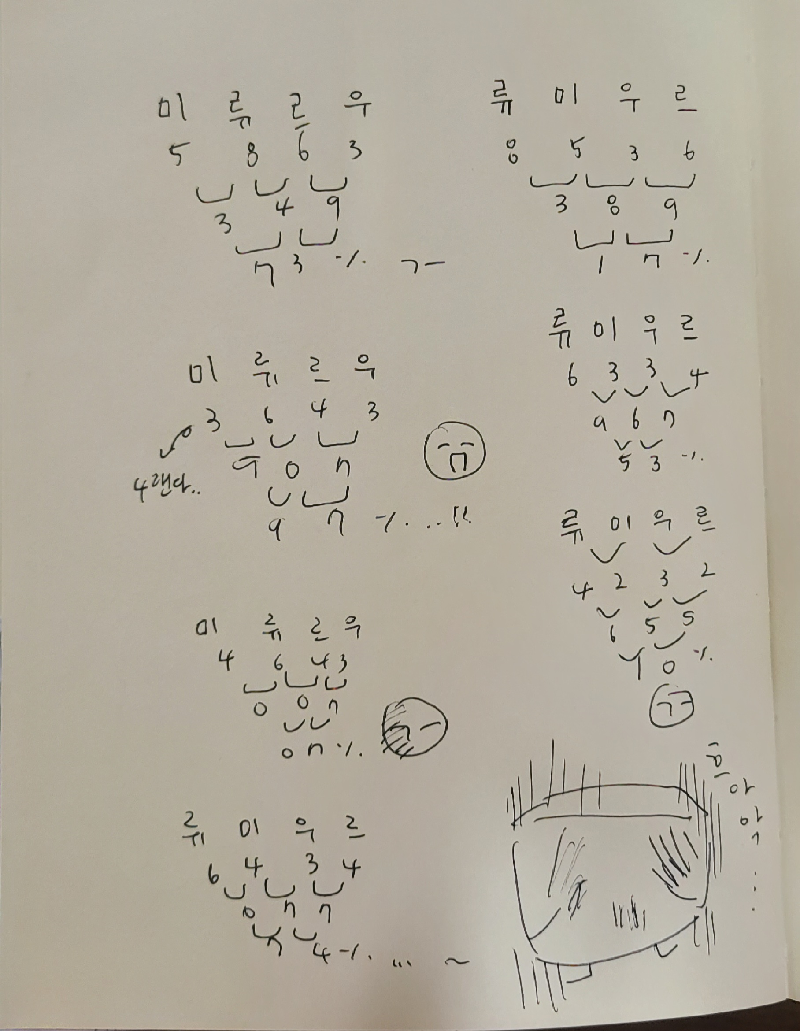 미 류 르 우
5 8 6 3
3 4 9
7 3 %. ㄱㅡ
류 미 우 르
8 5 3 6
3 8 9
1 7 %.
미 류 르 우
3 6 4 3
4랜다..
9 0 7
9 7 %....!!
류 미 우 르
6 3 3 4
9 6 7
5 3 %.
류 미 우 르
4 2 3 2
6 5 5
1 0 %.
미 류 르 우
4 6 4 3
0 0 7
0 7 %.
류 미 우 르
6 4 3 4
0 7 7
7 4 %. ... ~